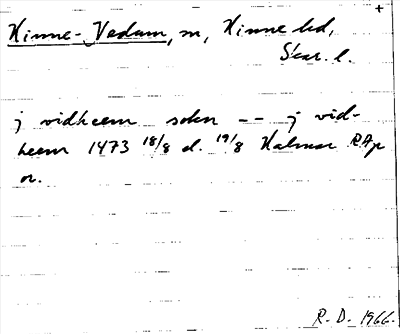 +
Kinne-Vedum, sn, Kinne hd,
Skar. l.
j vidheem sokn -- j vid-
heem 1473 18/8 d. 19/8 Kalmar RAp
or.
R. D. 1966.